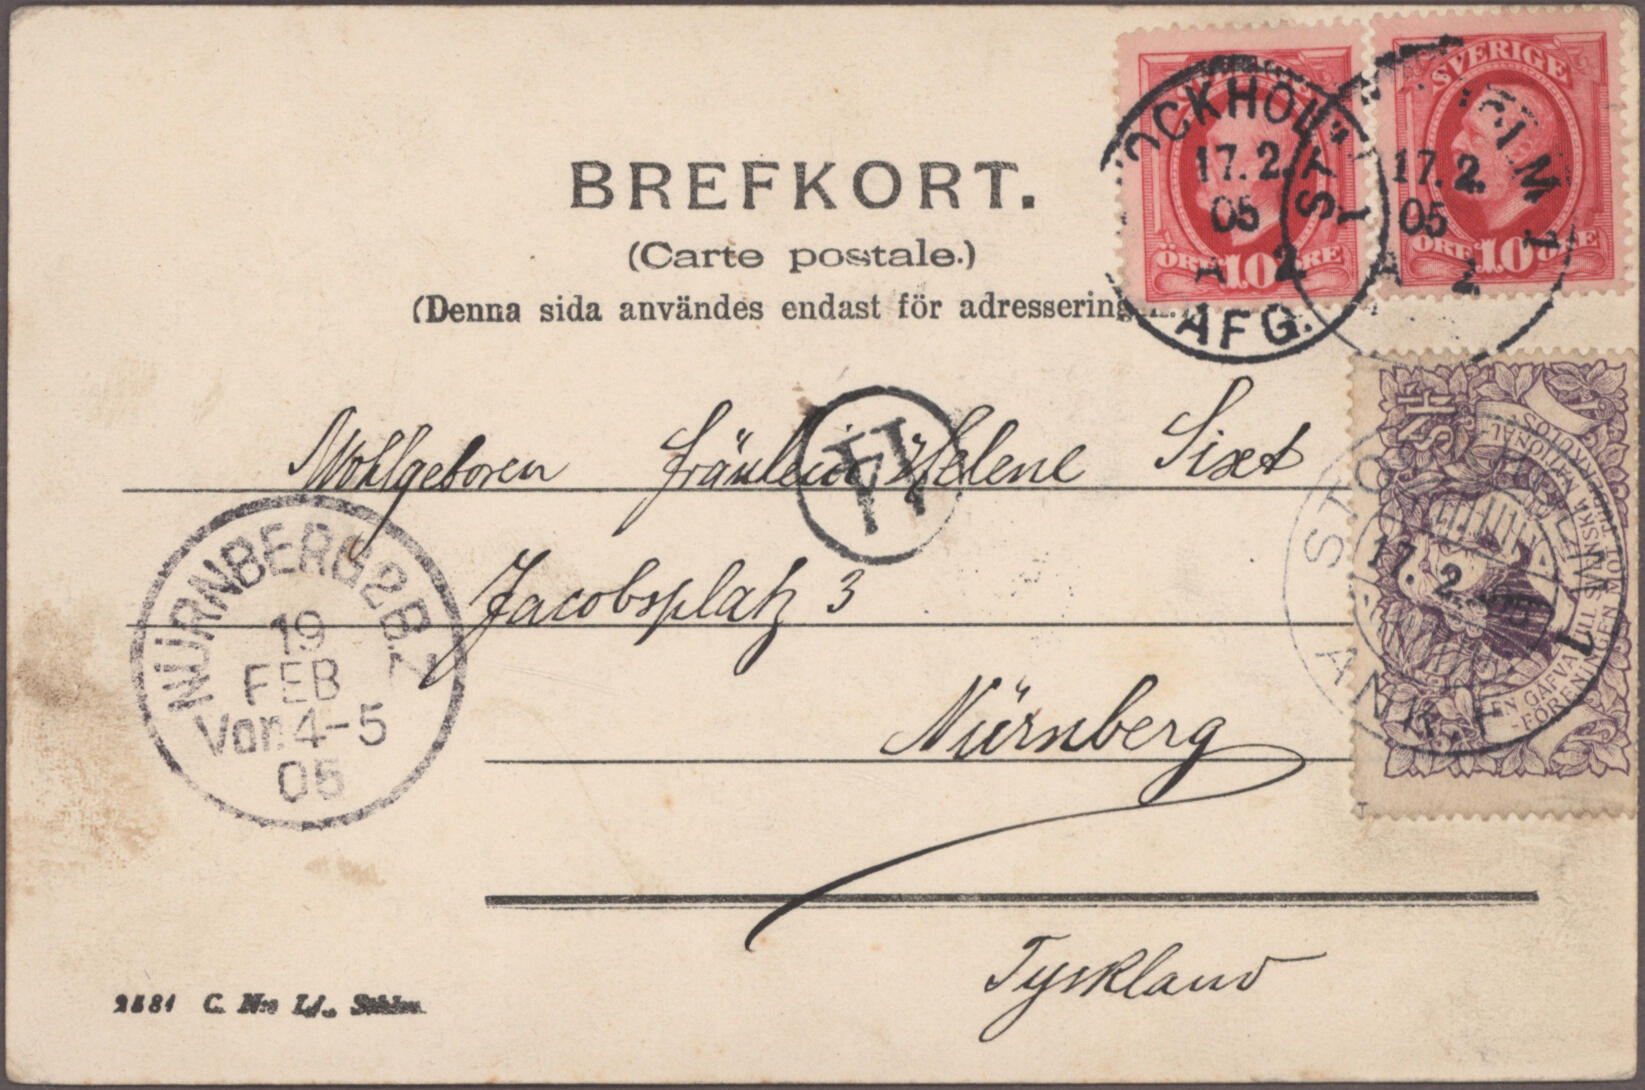 BREFKORT.
(Carte postale.)
(Denna sida användes endast för adressering
SVERIGE
ÖRE 10 ÖRE
SVERIGE
ÖRE 10 ÖRE
OCKHOLM
17.2.
05
A 2
AFG.
ST LM 1
17.2.
05
A 2
Wohlgeboren Fräulein Helene Sixt
Jacobsplatz 3
Nürnberg
Tyskland
NÜRNBERG 2 B.Z
19
FEB
Vor. 4-5
05
STO
17. 2. 05
ANK
1
EN GÅFVA TILL SVENSKA NATIONAL
-FÖRENINGEN MOT TUBERKULOS
2581 C. N:s Lj., Sthlm.